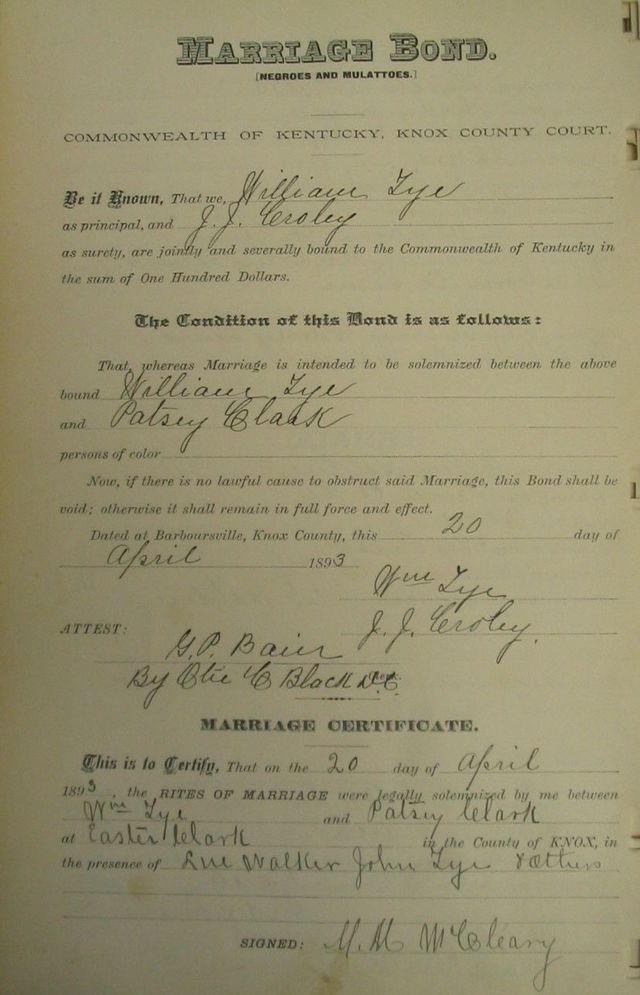 MARRIAGE BOND.
[NEGROES AND MULATTOES.]
COMMONWEALTH OF KENTUCKY, KNOX COUNTY COURT.
Be it Known, That we, William Tye
as principal, and J. J. Croley
as surety, are jointly and severally bound to the Commonwealth of Kentucky in
the sum of One Hundred Dollars.
The Condition of this Bond is as follows:
That, whereas Marriage is intended to be solemnized between the above
bound William Tye
and Patsey Clark
persons of color
Now, if there is no lawful cause to obstruct said Marriage, this Bond shall be
void; otherwise it shall remain in full force and effect.
Dated at Barboursville, Knox County, this 20 day of
April 1893
Wm Tye
J. J. Croley.
ATTEST:
G. P. Bain
By Otie C Black D.C.
MARRIAGE CERTIFICATE.
This is to Certify, That on the 20 day of April
1893, the RITES OF MARRIAGE were legally solemnized by me between
Wm Tye and Patsey Clark
at Easter Clark in the County of KNOX, in
the presence of Walker John Tye & others
SIGNED: M. M McCleary